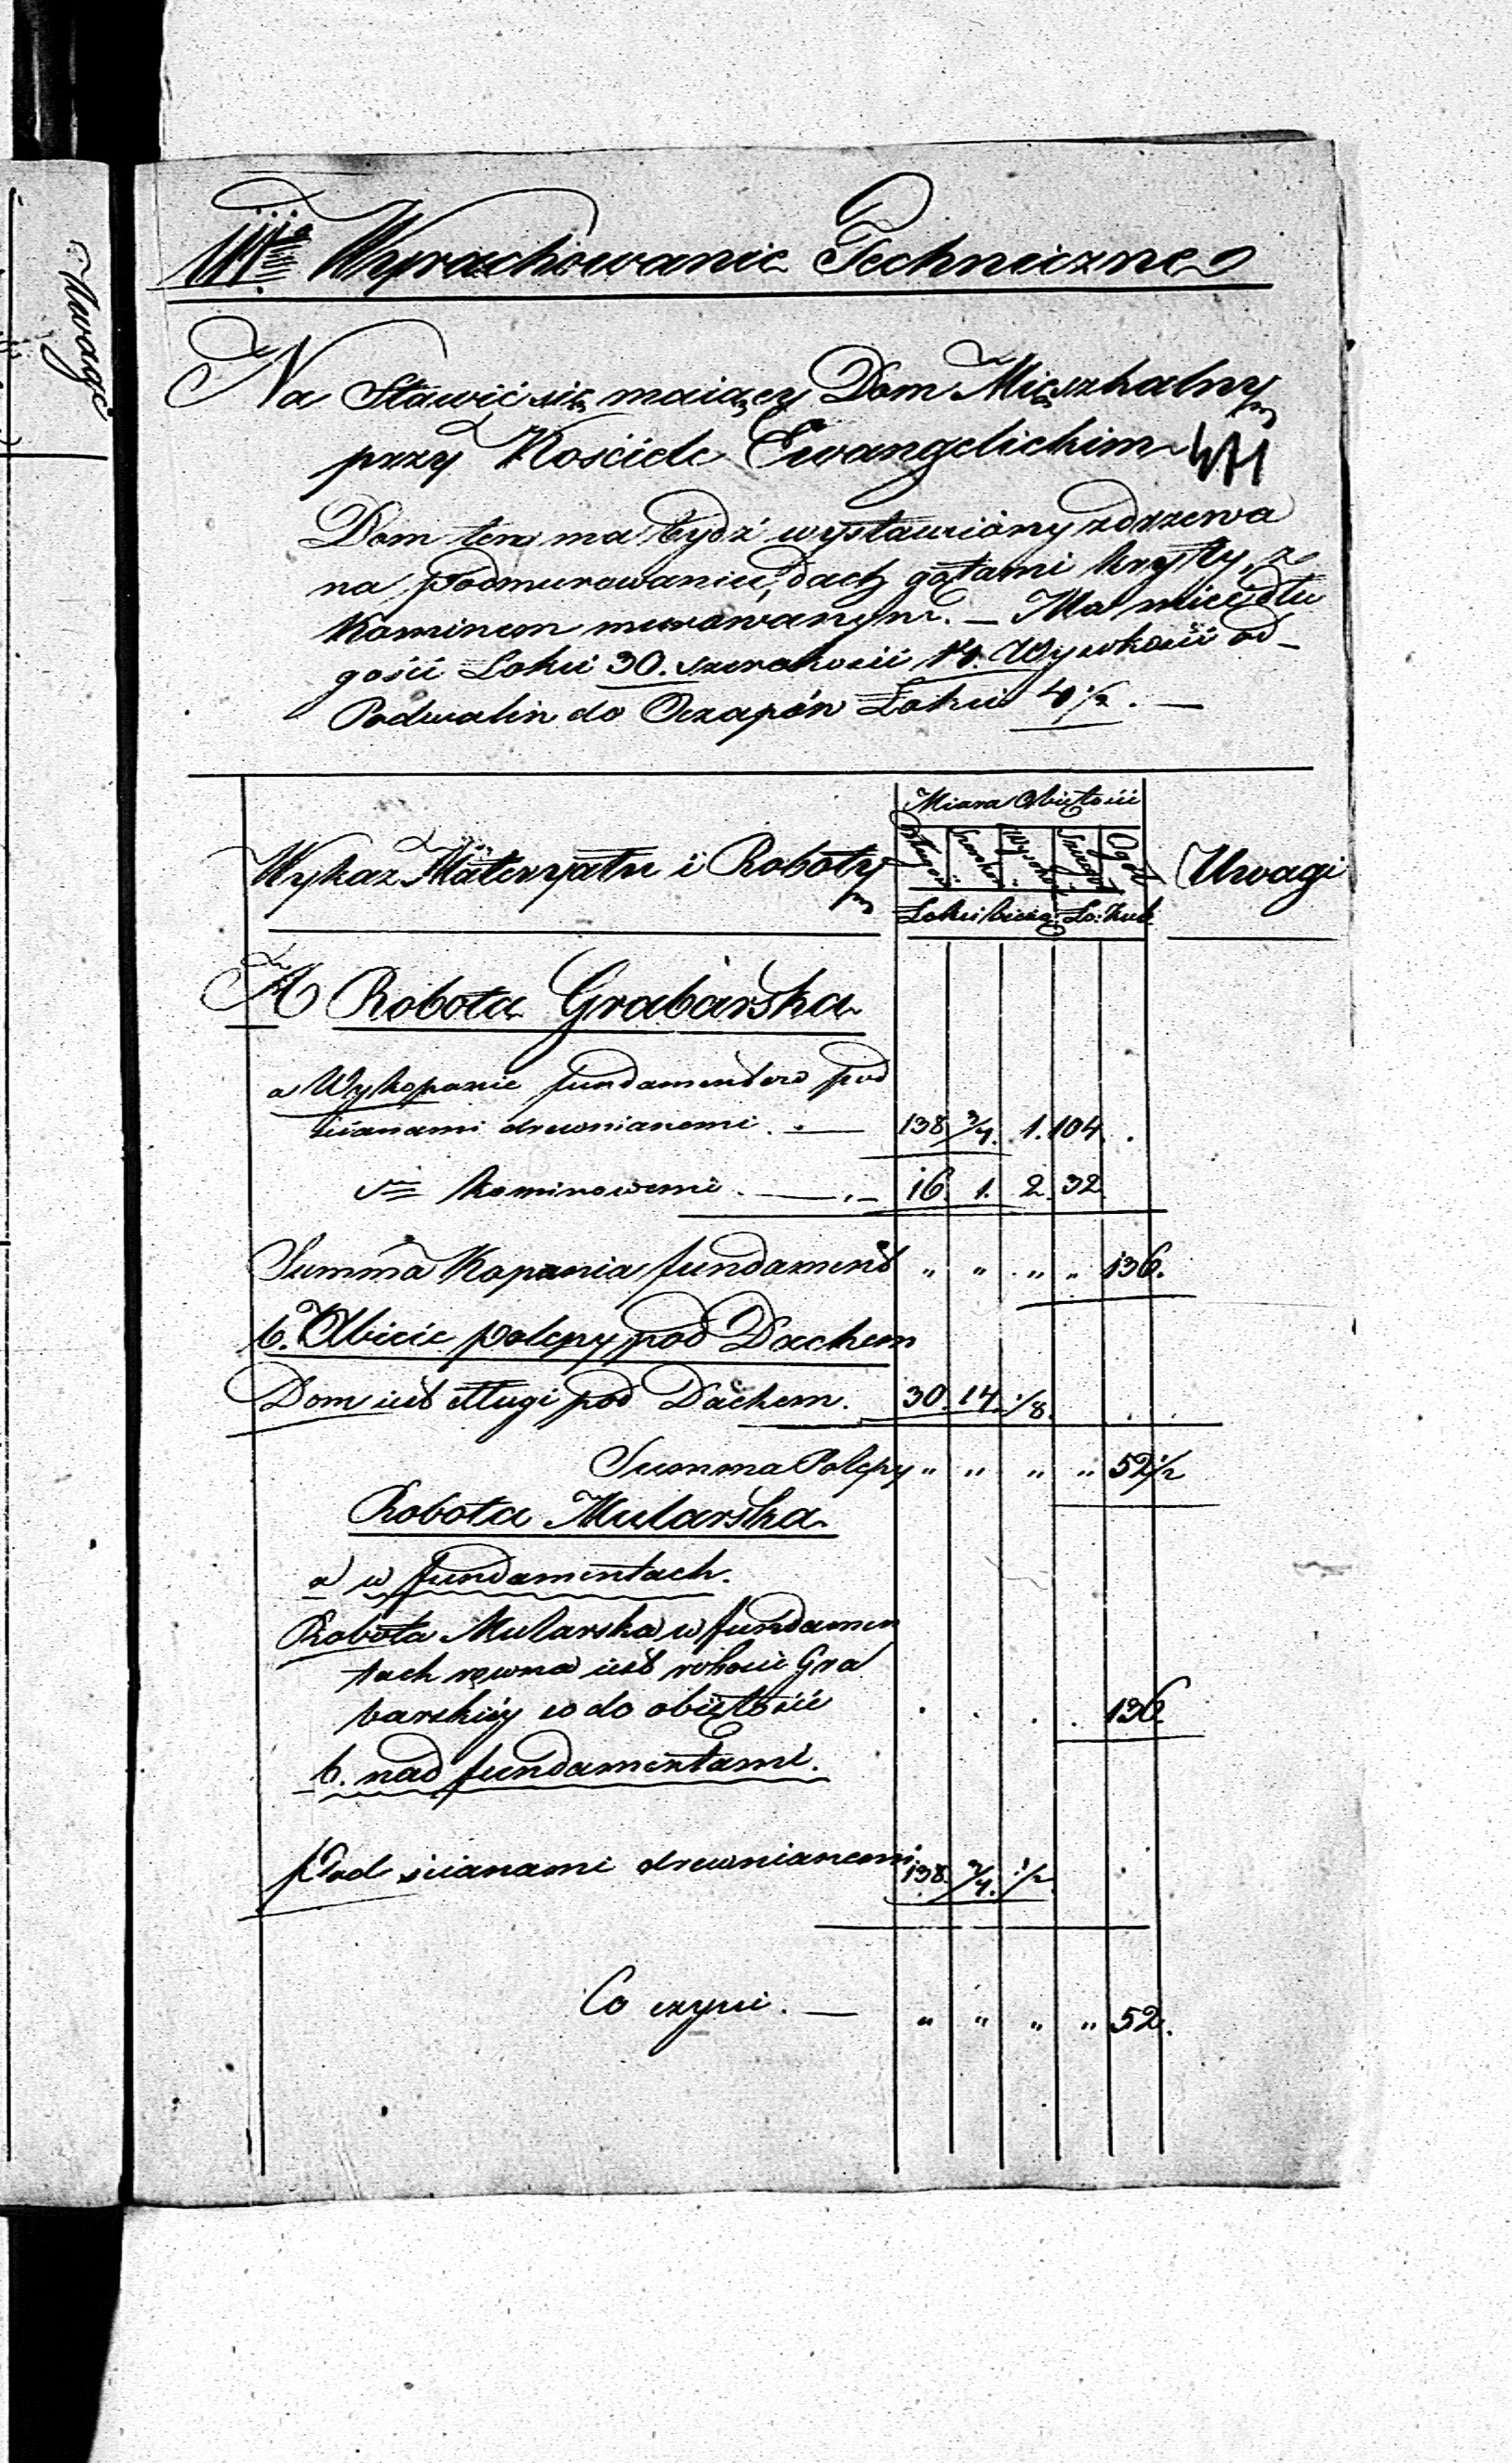 Uwagi
III. Wyrachowanie Techniczne
Na Stawić się maiący Dom Mieszkalny
przy Kościele Ewangelickim 471
Dom ten ma bydź wystawiony zdrzewa
na podmurowaniu, dach gątami kryty, z
Kominem murowanym. — Ma mieć dłu
gości Łokci 30. szerokości 14. Wysokości od
Podwalin do Oczapów Łokci 4 1/2. —
Wykaz Materyału i Roboty
Miara Obiętości
Długość Szerokość Wysokość Szczegół Ogół
Łokci bieżą: Ło: Kub
Uwagi
A Robota Grabarska
a Wykopanie fundamentów pod
ścianami drewnianemi. — 138 3/4. 1. 104.
Kominowemi. — 16. 1. 2. 32.
Summa Kopania fundament " " " " 136.
b. Ubicie polepy pod Dachem
Dom iest długi pod Dachem. 30. 14. 1/8.
Summa Polepy " " " " 52 1/2
Robota Mularska
a w fundamentach.
Robota Mularska w fundamen
tach rowna iest robocie Gra
barskiey co do obiętości . . . . 136.
b. nad fundamentami.
Pod scianami drewnianemi. 138. 3/4. 1/2
Co czyni. — " " " " 52.